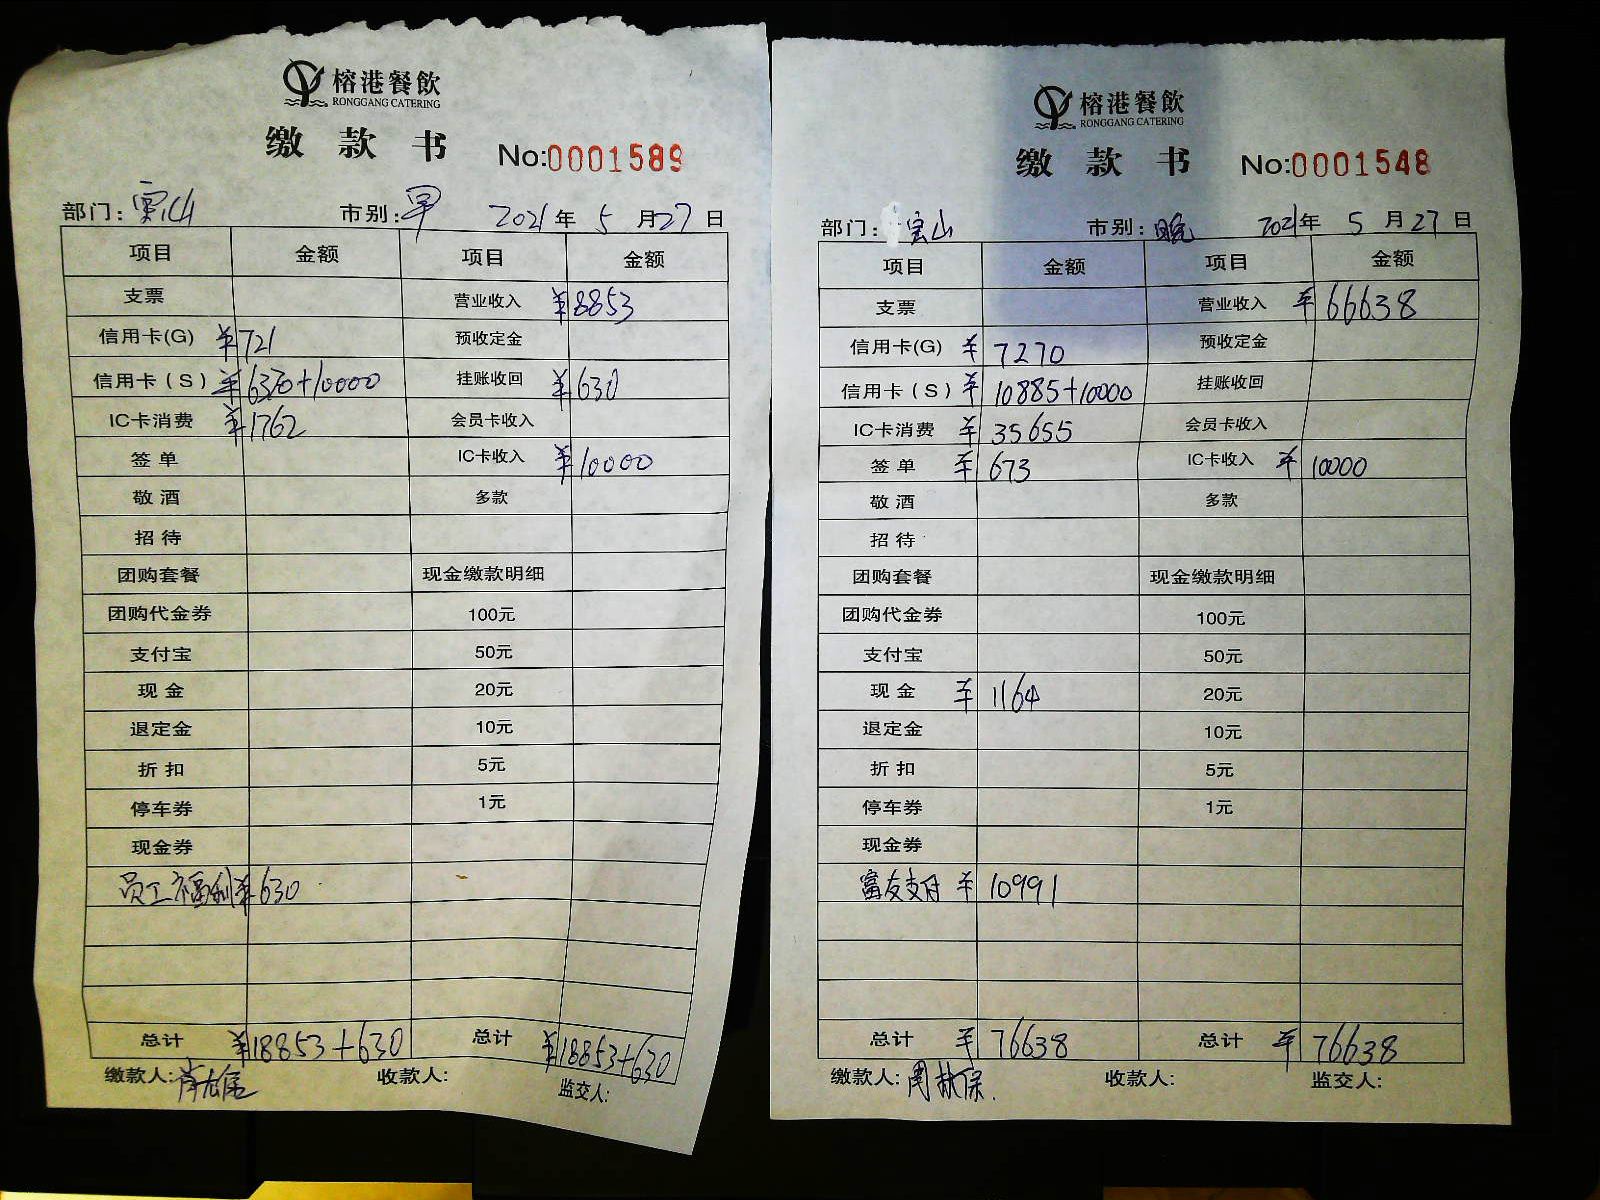 榕港餐飲
RONGGANG CATERING
缴款书 No:0001589
部门: 宝山 市别: 早 2021年 5月27日
项目 金额 项目 金额
支票 营业收入 ¥8853
信用卡(G) ¥721 预收定金
信用卡(S) ¥6370+10000 挂账收回 ¥630
IC卡消费 ¥1762 会员卡收入
签单 IC卡收入 ¥10000
敬酒 多款
招待
团购套餐 现金缴款明细
团购代金券 100元
支付宝 50元
现金 20元
退定金 10元
折扣 5元
停车券 1元
现金券
员工福利 ¥630
总计 ¥18853+630 总计 ¥18853+630
缴款人: 收款人: 监交人:
榕港餐飲
RONGGANG CATERING
缴款书 No:0001548
部门: 宝山 市别: 晚 2021年 5月27日
项目 金额 项目 金额
支票 营业收入 ¥66638
信用卡(G) ¥7270 预收定金
信用卡(S) ¥10885+10000 挂账收回
IC卡消费 ¥35655 会员卡收入
签单 ¥673 IC卡收入 ¥10000
敬酒 多款
招待
团购套餐 现金缴款明细
团购代金券 100元
支付宝 50元
现金 ¥1164 20元
退定金 10元
折扣 5元
停车券 1元
现金券
富友支付 ¥10991
总计 ¥76638 总计 ¥76638
缴款人: 周 收款人: 监交人: